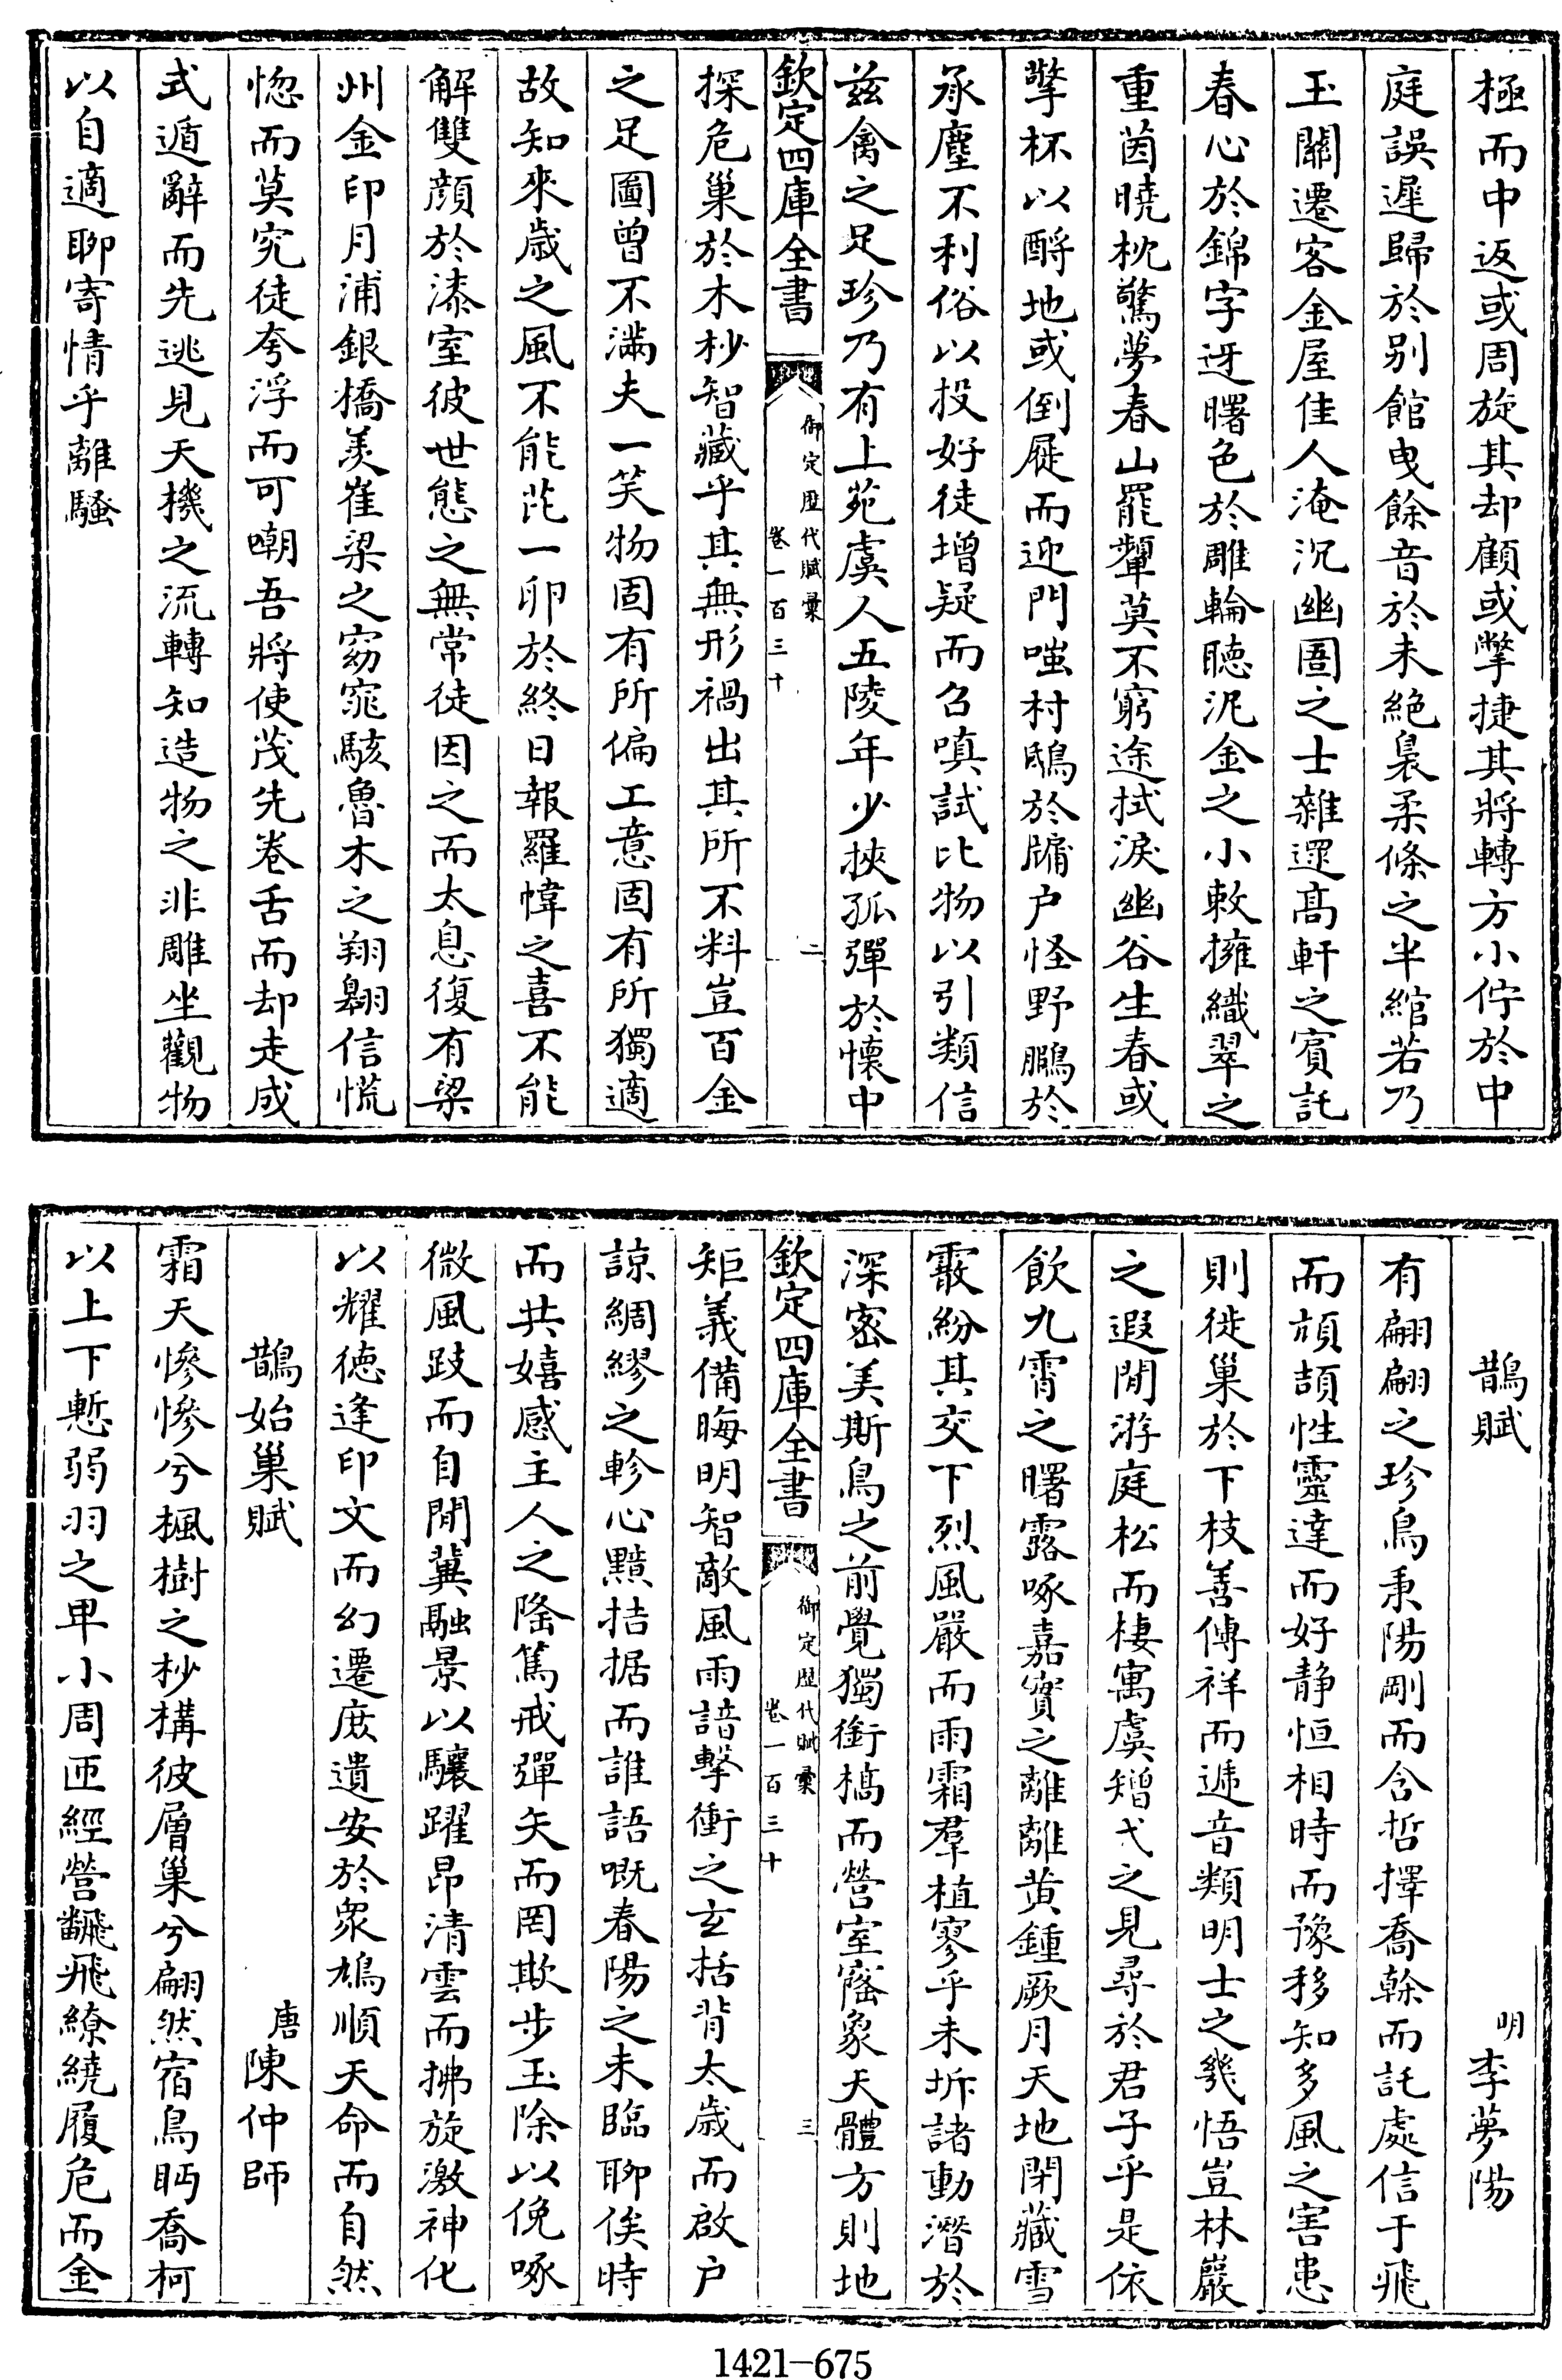 極而中返或周旋其却顧或撆捷其將轉方小佇於中
庭誤遲歸於别館曳餘音於未絶裊柔條之半綰若乃
玉關遷客金屋佳人淹沉幽圄之士雜遝髙軒之賔託
春心於錦字迓曙色於雕輪聴泥金之小敕擁織翠之
重茵曉枕驚夢春山罷顰莫不窮途拭淚幽谷生春或
擎杯以酹地或倒屣而迎門嗤村鴟於牖户怪野鵬於
承塵不利俗以投好徒增疑而召嗔試比物以引類信
兹禽之足珍乃有上苑虞人五陵年少挾孤彈於懷中
欽定四庫全書 御定歴代賦彙 卷一百三十 二
探危巢於木杪智藏乎其無形禍出其所不料豈百金
之足圖曾不滿夫一笑物固有所偏工意固有所獨適
故知來歲之風不能芘一卵於終日報羅幃之喜不能
解雙顔於漆室彼世態之無常徒因之而太息復有梁
州金印月浦銀橋羨崔梁之窈窕駭魯木之翔翺信慌
惚而莫究徒夸浮而可嘲吾將使茂先卷舌而却走成
式遁辭而先逃見天機之流轉知造物之非雕坐觀物
以自適聊寄情乎離騷
鵲賦 明李夢陽
有翩翩之珍鳥秉陽剛而含哲擇喬榦而託處信于飛
而頏頡性靈達而好静恒相時而豫移知多風之害患
則徙巢於下枝善傳祥而逓音類明士之㡬悟豈林巖
之遐閒游庭松而棲寓虞矰弋之見尋於君子乎是依
飲九霄之曙露啄嘉實之離離黄鍾厥月天地閉藏雪
霰紛其交下烈風嚴而雨霜羣植寥乎未坼諸動潛於
深宻美斯鳥之前覺獨銜槁而營室窰象天體方則地
欽定四庫全書 御定歴代賦彙 卷一百三十 三
矩義備晦明智敵風雨諳擊衝之玄括背太歲而啟户
諒綢繆之軫心黯拮据而誰語嘅春陽之未臨聊俟時
而共嬉感主人之隆篤戒彈矢而罔欺步玉除以俛啄
微風跂而自閒冀融景以驤躍昂清雲而拂旋激神化
以耀徳逢印文而幻遷庶遺安於衆鳩順天命而自然
鵲始巢賦 唐陳仲師
霜天慘慘兮楓樹之杪構彼層巢兮翩然宿鳥眄喬柯
以上下慙弱羽之卑小周匝經營飜飛繚繞履危而金
1421-675